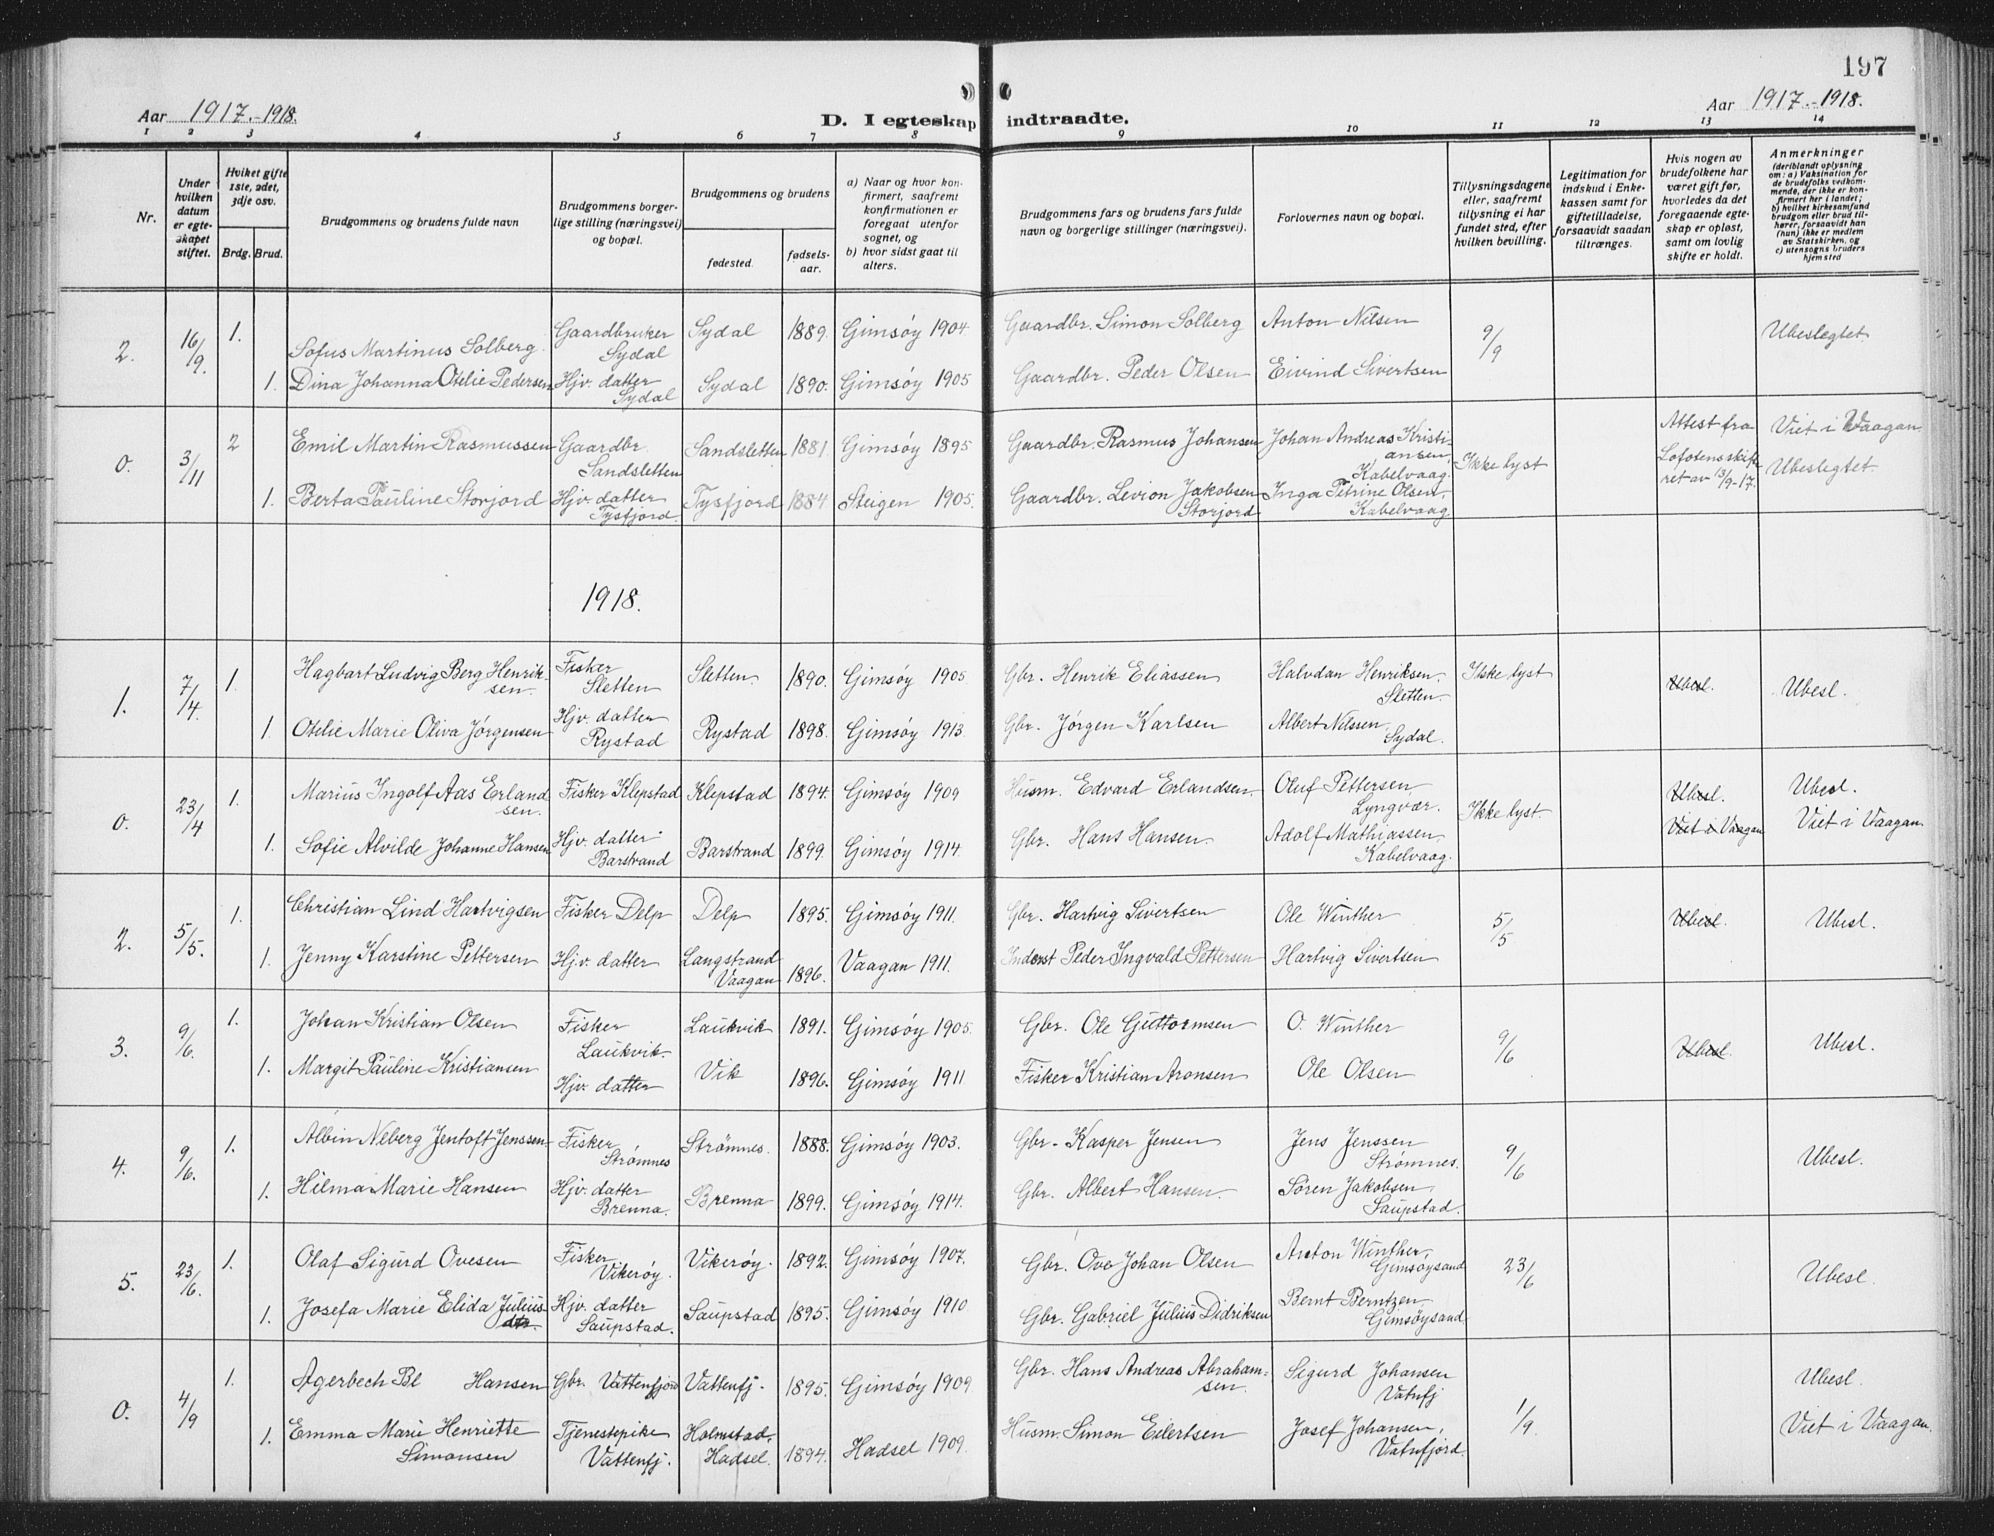 197
Aar 1917.-1918.
D. I egteskap indtraadte.
Aar 1917.-1918.
1 2 3 4 5 6 7 8 9 10 11 12 13 14
Nr.
Under hvilken datum er egteskapet stiftet.
Hviket gifte 1ste, 2det, 3dje osv.
Brdg. Brud.
Brudgommens og brudens fulde navn
Brudgommens borgerlige stilling (næringsvei) og bopæl.
Brudgommens og brudens
fødested.
fødselsaar.
a) Naar og hvor konfirmert, saafremt konfirmationen er foregaat utenfor sognet, og
b) hvor sidst gaat til alters.
Brudgommens fars og brudens fars fulde navn og borgerlige stillinger (næringsvei).
Forlovernes navn og bopæl.
Tillysningsdagene eller, saafremt tillysning ei har fundet sted, efter hvilken bevilling.
Legitimation for indskud i Enkekassen samt for giftetilladelse, forsaavidt saadan tiltrænges.
Hvis nogen av brudefolkene har været gift før, hvorledes da det foregaaende egteskap er opløst, samt om lovlig skifte er holdt.
Anmerkninger
(deriblandt oplysning om: a) Vaksination for de brudefolks vedkommende, der ikke er konfirmert her i landet; b) hvilket kirkesamfund brudgom eller brud tilhører, forsaavidt han (hun) ikke er medlem av Statskirken, og c) utensogns bruders hjemsted
2. 16/9. 1. Sofus Martinus Solberg Gaardbruker Sydal Sydal 1889. Gimsöy 1904 Gaardbr. Simon Solberg Anton Nilsen 9/9 Ubeslegtet
1. Dina Johanna Otelie Pedersen Hjv. datter Sydal Sydal 1890. Gimsöy 1905 Gaardbr. Peder Olsen Eivind Sivertsen
0. 3/11 2 Emil Martin Rasmussen Gaardbr. Sandsletten Sandsletten 1881. Gimsöy 1895 Gaardbr. Rasmus Johansen Johan Andreas Kristiansen, Kabelvaag. Ikke lyst Attest fra Lofotens skifteret av 13/9-17. Viet i Vaagan. Ubeslegtet
1. Berta Pauline Storjord Hjv. datter Tysfjord. Tysfjord 1884 Steigen 1905. Gaardbr. Levion Jakobsen Storjord Inga Petrine Olsen, Kabelvaag
1918.
1. 7/4. 1. Hagbart Ludvig Berg Henriksen. Fisker Sletten Sletten. 1890. Gimsöy 1905 Gbr. Henrik Eliassen Halvdan Henriksen, Sletten. Ikke lyst Ubesl. Ubesl.
1. Otelie Marie Oliva Jörgensen Hjv. datter Rystad Rystad 1898. Gimsöy 1913 Gbr. Jörgen Karlsen Albert Nilssen, Sydal.
0. 23/4 1. Marius Ingolf Aas Erlandsen. Fisker Klepstad Klepstad 1894. Gimsöy 1909 Husm. Edvard Erlandsen. Oluf Pettersen Lyngvær. Ikke lyst. Ubesl. Viet i Vaagan Ubesl. Viet i Vaagan.
1. Sofie Alvilde Johanne Hansen Hjv. datter Barstrand Barstrand 1899. Gimsöy 1914. Gbr. Hans Hansen. Adolf Mathiassen, Kabelvaag.
2. 5/5. 1. Christian Lind Hartvigsen Fisker Delp Delp 1895. Gimsöy 1911. Gbr. Hartvig Sivertsen Ole Winther 5/5 Ubesl. Ubesl.
1. Jenny Karstine Pettersen Hjv. datter Langstrand Vaagan 1896. Vaagan 1911. Inderst Peder Ingvald Pettersen Hartvig Sivertsen
3. 9/6. 1. Johan Kristian Olsen Fisker Laukvik. Laukvik 1891. Gimsöy 1905. Gbr. Ole Guttormsen O. Winther 9/6 Ubesl. Ubesl.
1. Margit Pauline Kristiansen Hjv. datter Vik 1896. Gimsöy 1911 Fisker Kristian Aronsen Ole Olsen
4. 9/6. 1. Albin Neberg Jentoft Jenssen Fisker Strömnes Strömnes. 1888. Gimsöy 1903. Gbr. Kasper Jensen Jens Jenssen Strömnes. 9/6 Ubesl.
1. Hilma Marie Hansen Hjv. datter Brenna. Brenna 1899. Gimsöy 1914. Gbr. Albert Hansen. Sören Jakobsen, Saupstad.
5. 23/6. 1. Olaf Sigurd Ovesen Fisker Vikeröy. Vikeröy. 1892. Gimsöy 1907. Gbr. Ove Johan Olsen Anton Winther, Gimsöysand 23/6 Ubesl.
1. Josefa Marie Elida Juliusdtr. Hjv. datter Saupstad. Saupstad 1895. Gimsöy 1910 Gbr. Gabriel Julius Didriksen Bernt Berntzen Gimsöysand
0. 4/9 1. Agerbech Bl Hansen Gbr. Vattenfjord Vattenfj. 1895. Gimsöy 1909 Gbr. Hans Andreas Abrahamsen. Sigurd Johansen Vatnfj 1/9. Ubesl. Viet i Vaagan.
1. Emma Marie Henriette Simonsen Tjenestepike Vattenfj. Holmstad, Hadsel. 1894. Hadsel 1909. Husm. Simon Eilertsen Josef Johansen, Vatnfjord.